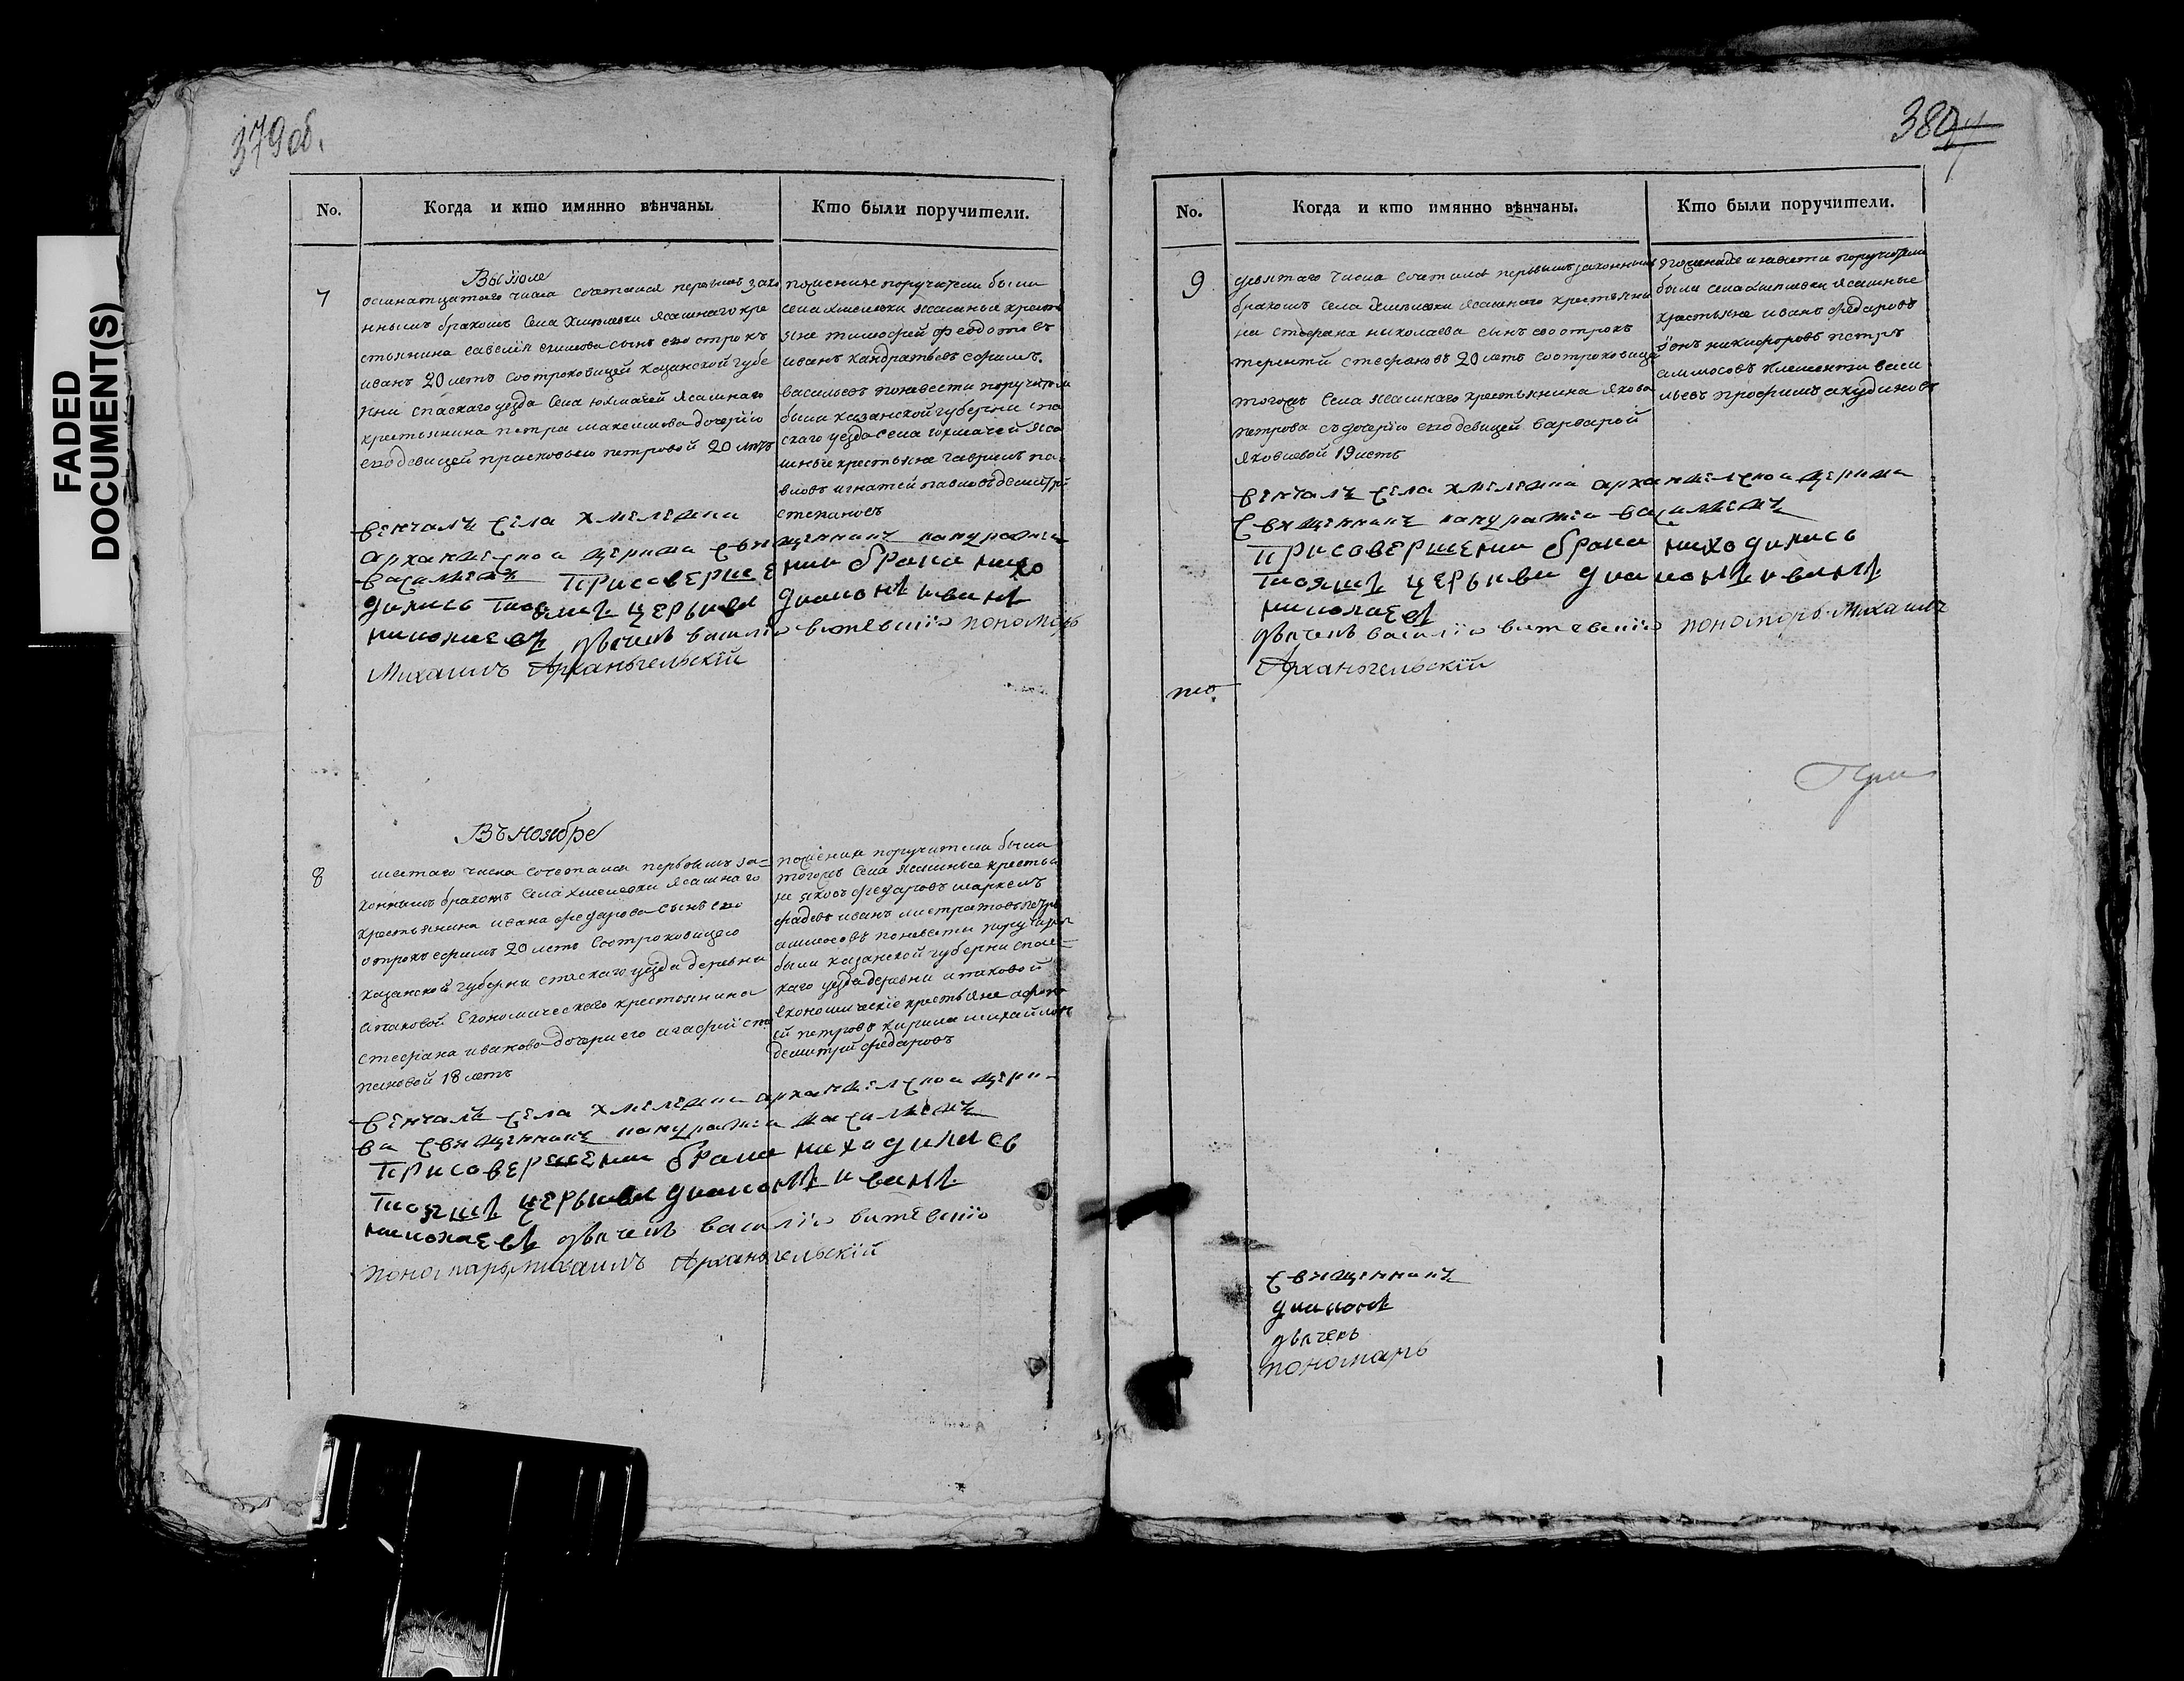 FADED
DOCUMENT(S)
379 об.
No.
Когда и кто имянно вѣнчаны.
Кто были поручители.
7
Въ Июле
осмнатцатаго числа сочетался первымъ зако
ннымъ бракомъ села Хмелевки ясашнаго кре
стьянина савелия сынъ ево отрокъ
иванъ 20 летъ соотроковицей казанской губе
рни спаскаго уезда села юхмачей ясашнаго
крестьянина петра максимова дочерию
ево девицей прасковьею петровой 20 летъ
пожених поручители были
села хмелевки ясашные кресть
яне тимофей федотовъ
иванъ кандратьевъ ефимъ
васильевъ поневести поручители
были казанской губерни спа
скаго уезда села юхмачей яса
шные крестьяне гаврилъ па
вловъ игнатей павловъ демитри
степановъ
венчалъ села хмелевки
архангелской церкви священникъ панкратий
васильевъ При совершении брака нахо
дились тояжъ церькви диаконъ иванъ
николаевъ дьячекъ василий витевский пономарь
Михаилъ Арханьгельский
Въ ноябре
8
шестаго числа сочетался первымъ за=
коннымъ бракомъ села хмелевки ясашнаго
крестьянина ивана федарова сынъ ево
отрокъ ефимъ 20 летъ соотроковицею
казанской губерни спаскаго уезда деревни
атаковой економическаго крестьянина
стефана иванова дочери его агафии сте
пановой 18 летъ
поженихе поручители были
тогожъ села ясашные крестья
не яковъ федаровъ маркелъ
фадевъ иванъ листратовъ петръ
аммосовъ поневести поручители
были казанской губерни спас=
каго уезда деревни атаковой
економические крестьяне
петровъ кирила михайловъ
демитрий федаровъ
венчалъ села хмелевки архангелской церк-
ви священникъ панкратий васильевъ
При совершении брака находились
тояжъ церькви диаконъ иванъ
николаевъ дьячекъ василий витевский
пономарь михаилъ Арханьгельский
380
No.
Когда и кто имянно вѣнчаны.
Кто были поручители.
9
девятаго числа сочетался первымъ законнымъ
бракомъ села Хмелевки ясашнаго крестьяни
на стефана николаева сынъ ево отрокъ
терентий стефановъ 20 летъ соотроковице
тогожъ села ясашнаго крестьянина якова
петрова съ дочерию ево девицей варварой
яковлевой 19 летъ
поженихе и невести поручители
были села хмелевки ясашные
крестьяне иванъ федаровъ
никифоровъ петръ
аммосовъ васи
льевъ трофимъ акудиновъ
венчалъ села хмелевки архангелской церкви
священникъ панкратий васильевъ
При совершении брака находились
тояжъ церькви диаконъ иванъ
николаевъ
дьячекъ василий витевский пономарь Михаилъ
Арханьгельский
священникъ
диаконъ
дьячекъ
пономарь